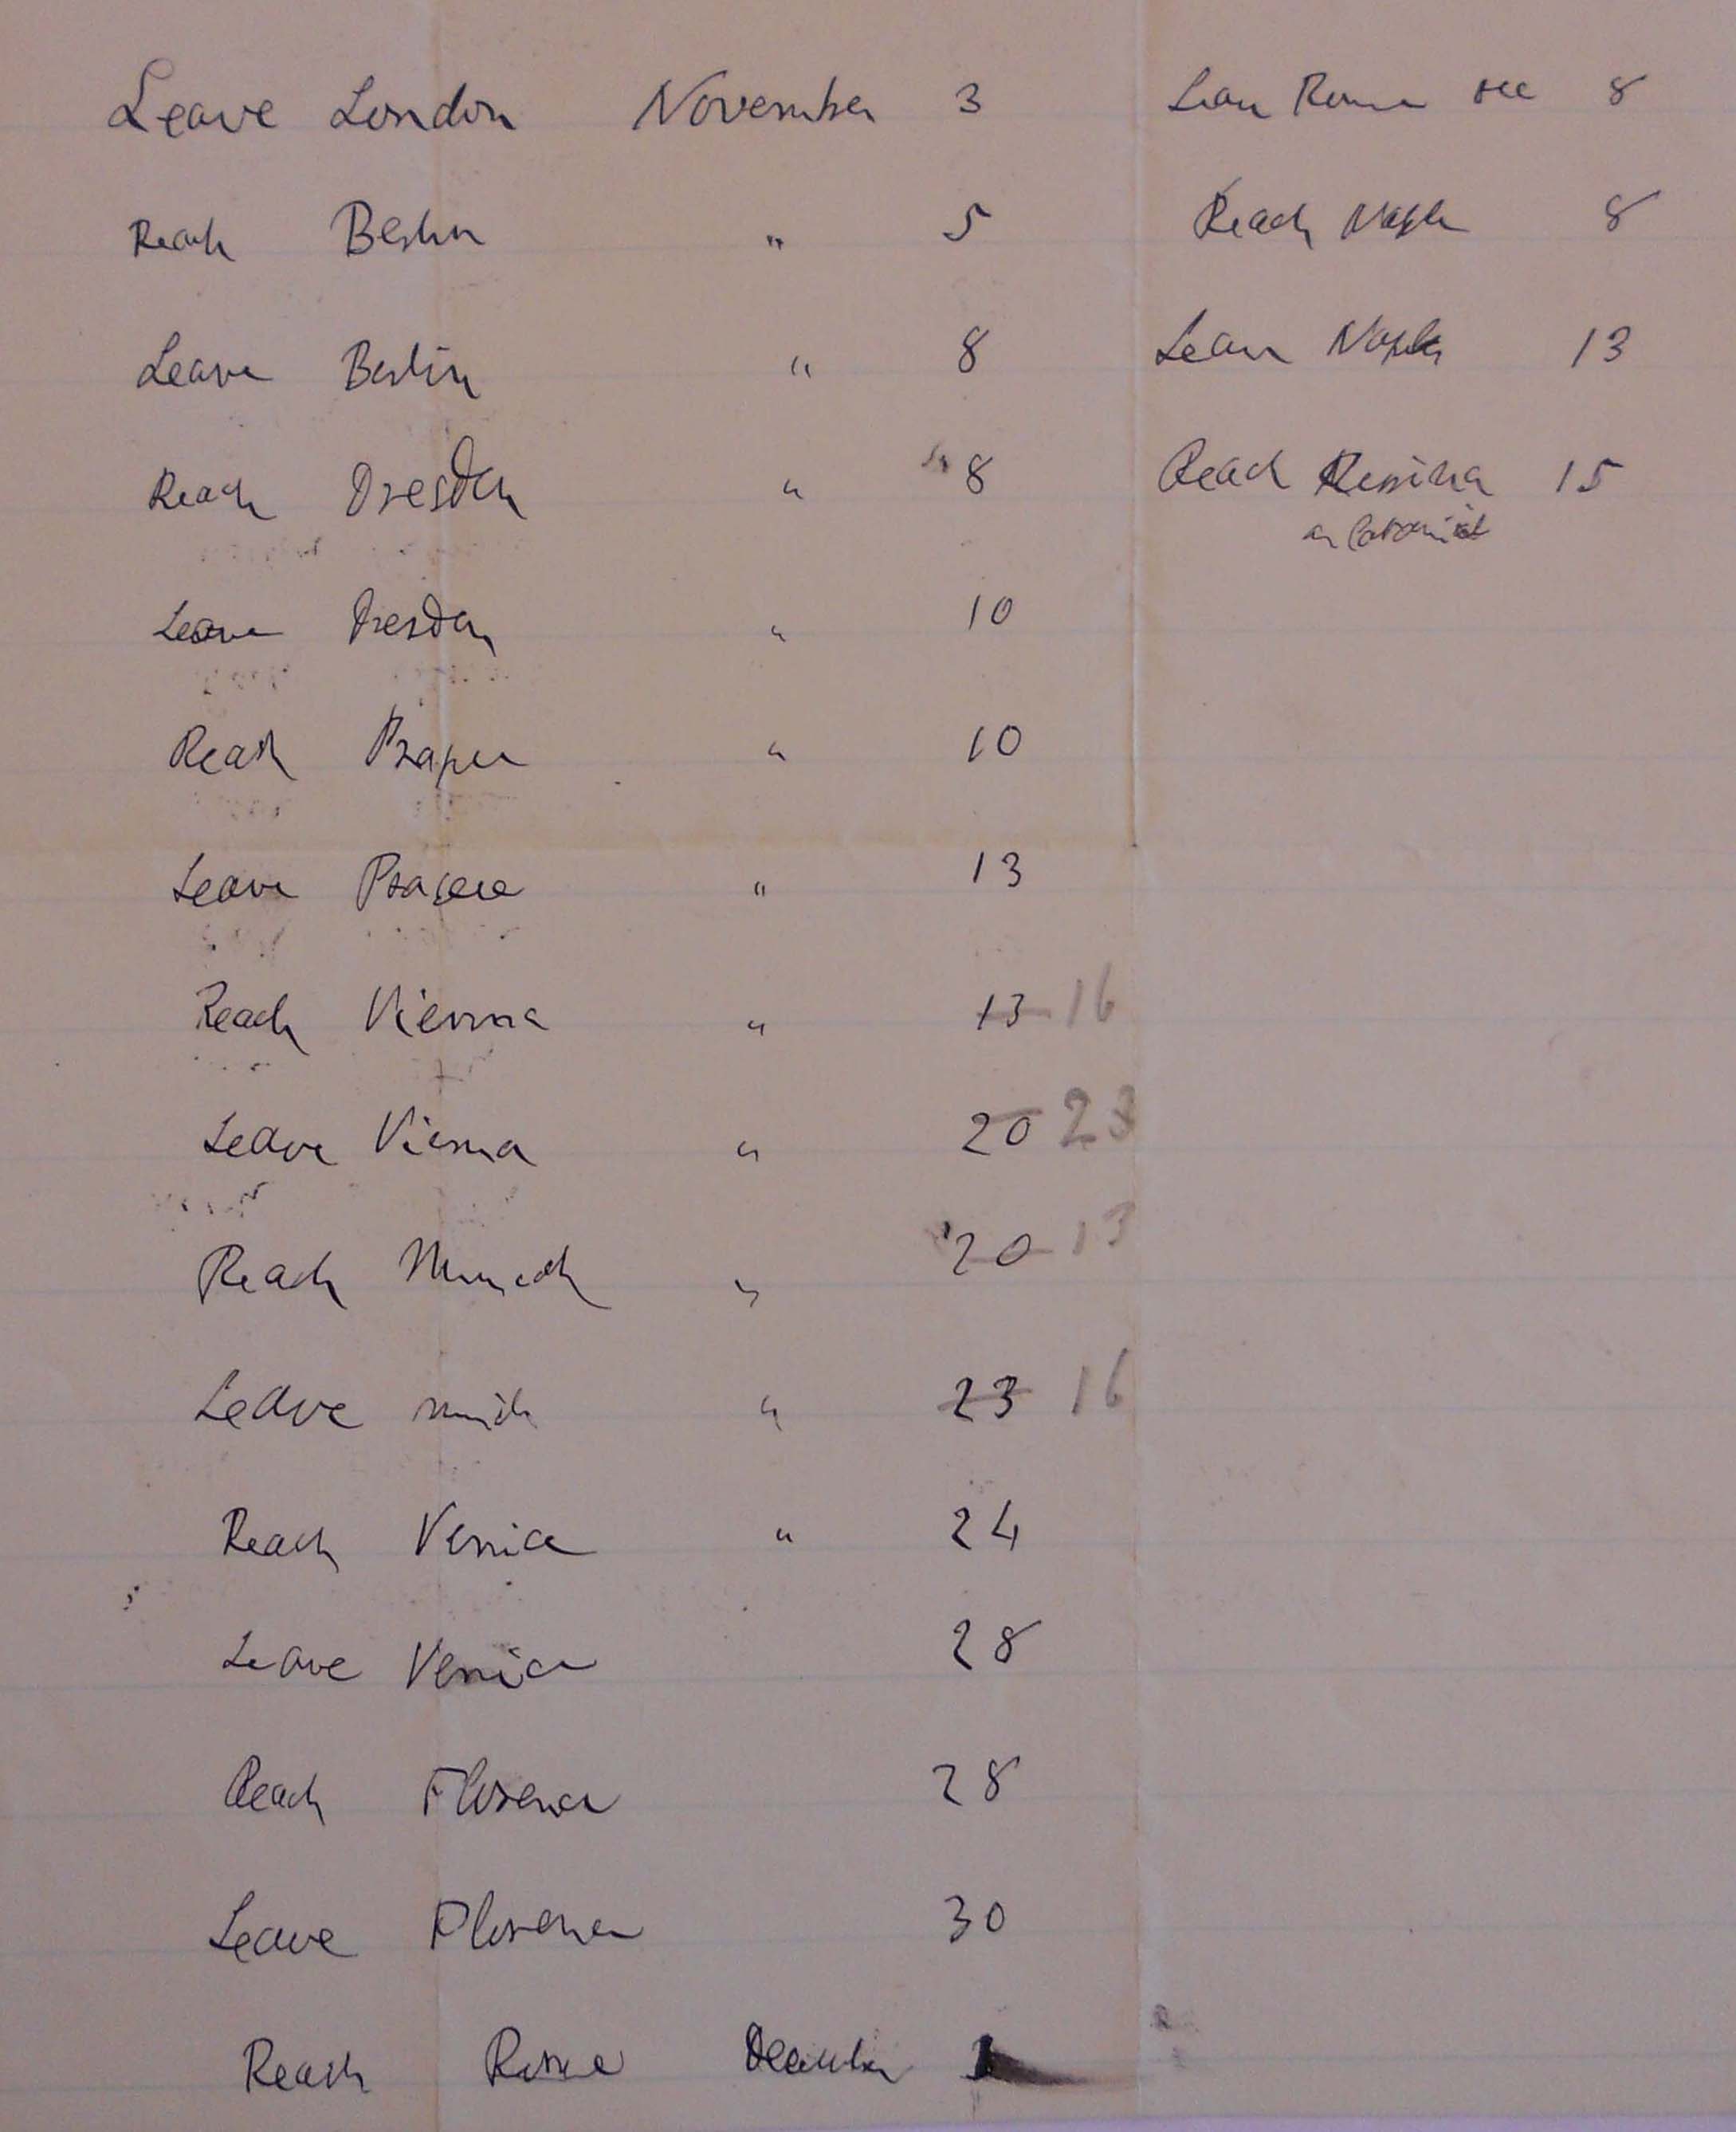 Leave London November 3
Reach Berlin " 5
Leave Berlin " 8
Reach Dresden " 8
Leave Dresden " 10
Reach Prague " 10
Leave Prague " 13
Reach Vienna " 13 16
Leave Vienna " 20 23
Reach Munich " 20 13
Leave Munich " 23 16
Reach Venice " 24
Leave Venice 28
Reach Florence 28
Leave Florence 30
Reach Rome December 1
Leave Rome Dec 8
Reach Naples 8
Leave Naples 13
Reach Messina 15
or